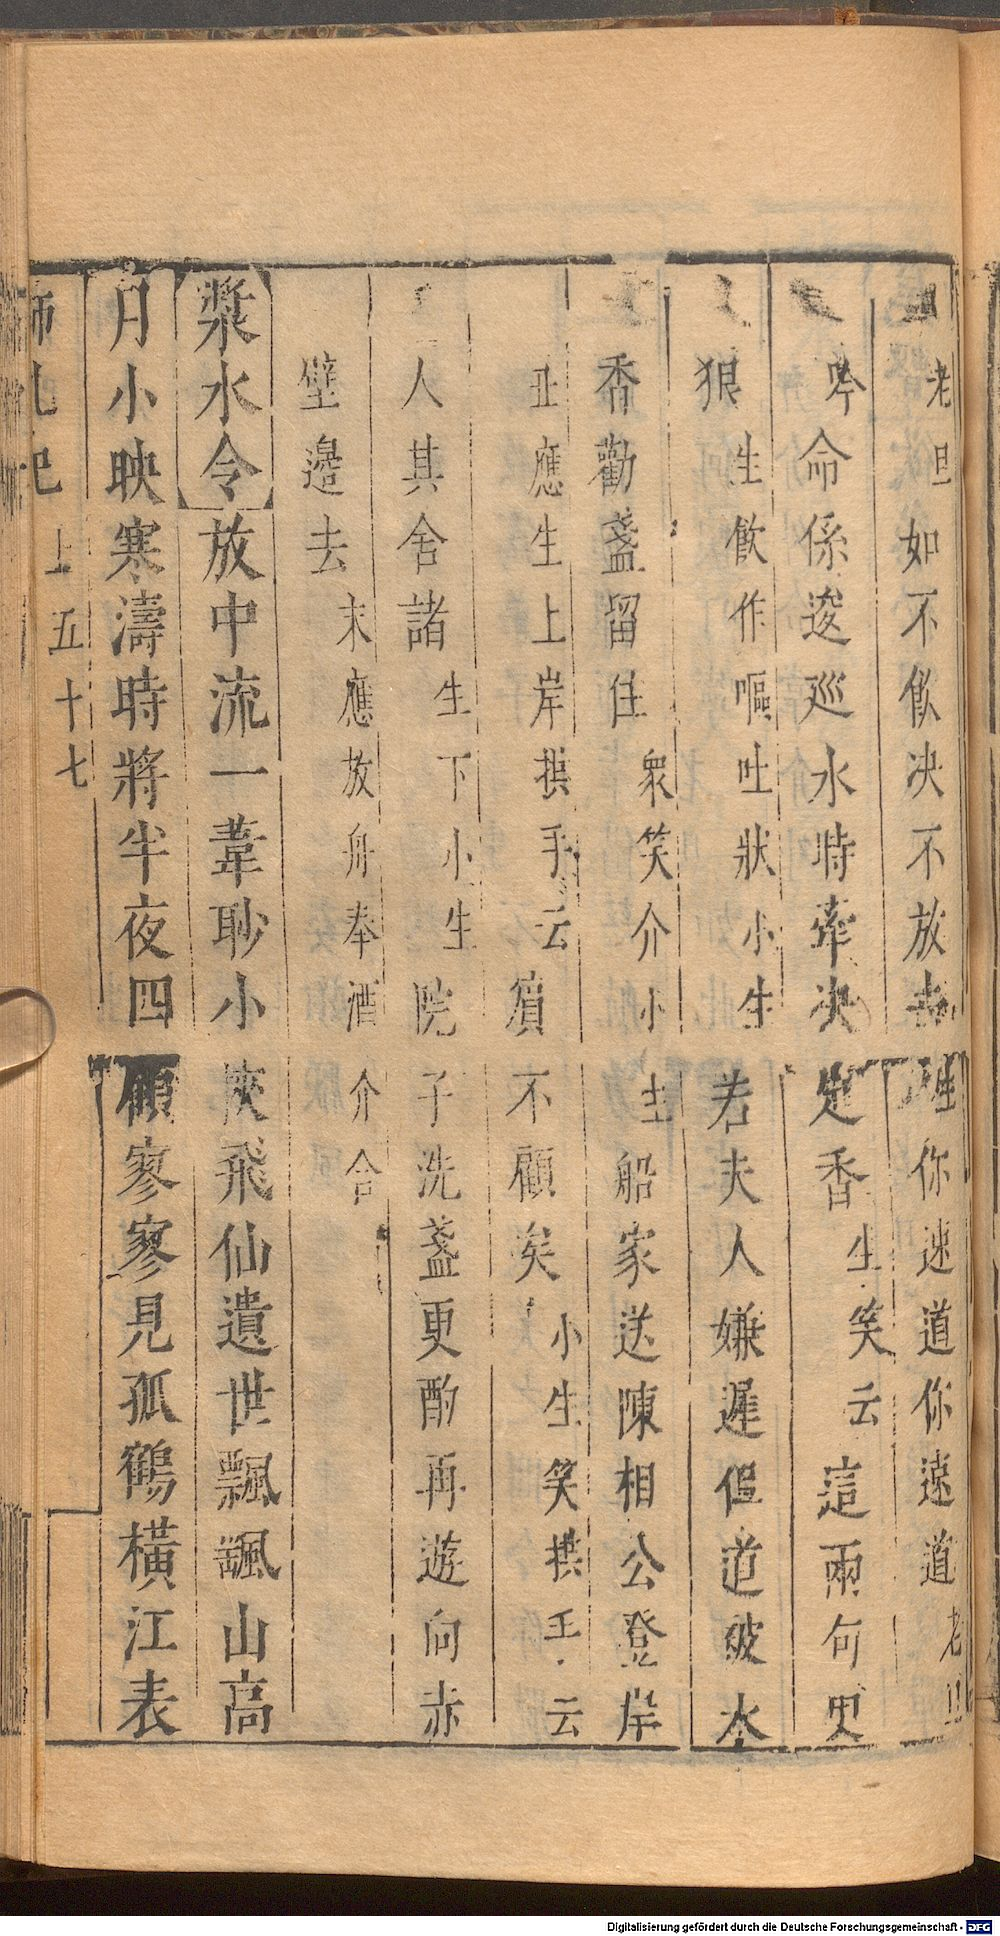 老旦如不飲決不放去生你速道你速道老旦
吟命係逡巡水時牽決定香生笑云這兩句更
狠生飲作嘔吐狀小生若夫人嫌遲但道破水
香勸盞留住衆笑介小生船家送陳相公登岸
丑應生上岸拱手云須不顧矣小生笑拱手云
人其舍諸生下小生院子洗盞更酌再遊向赤
壁邊去末應放舟奉酒介合
漿水令放中流一葦聊小俠飛仙遺世飄颻山高
月小映寒濤時將半夜四顧寥寥見孤鶴橫江表
上五十七
Digitalisierung gefördert durch die Deutsche Forschungsgemeinschaft - DFG